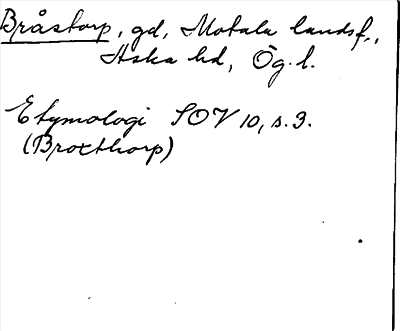 Bråstorp, gd, Motala landsf.,
Aska hd, Ög. l.
Etymologi SOV 10, s. 3.
(Broxthorp)